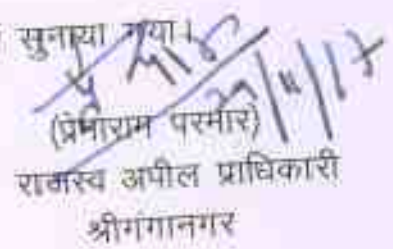 सुनाया गया।
29/11/17
(प्रेमाराम परमार)
राजस्व अपील प्राधिकारी
श्रीगंगानगर